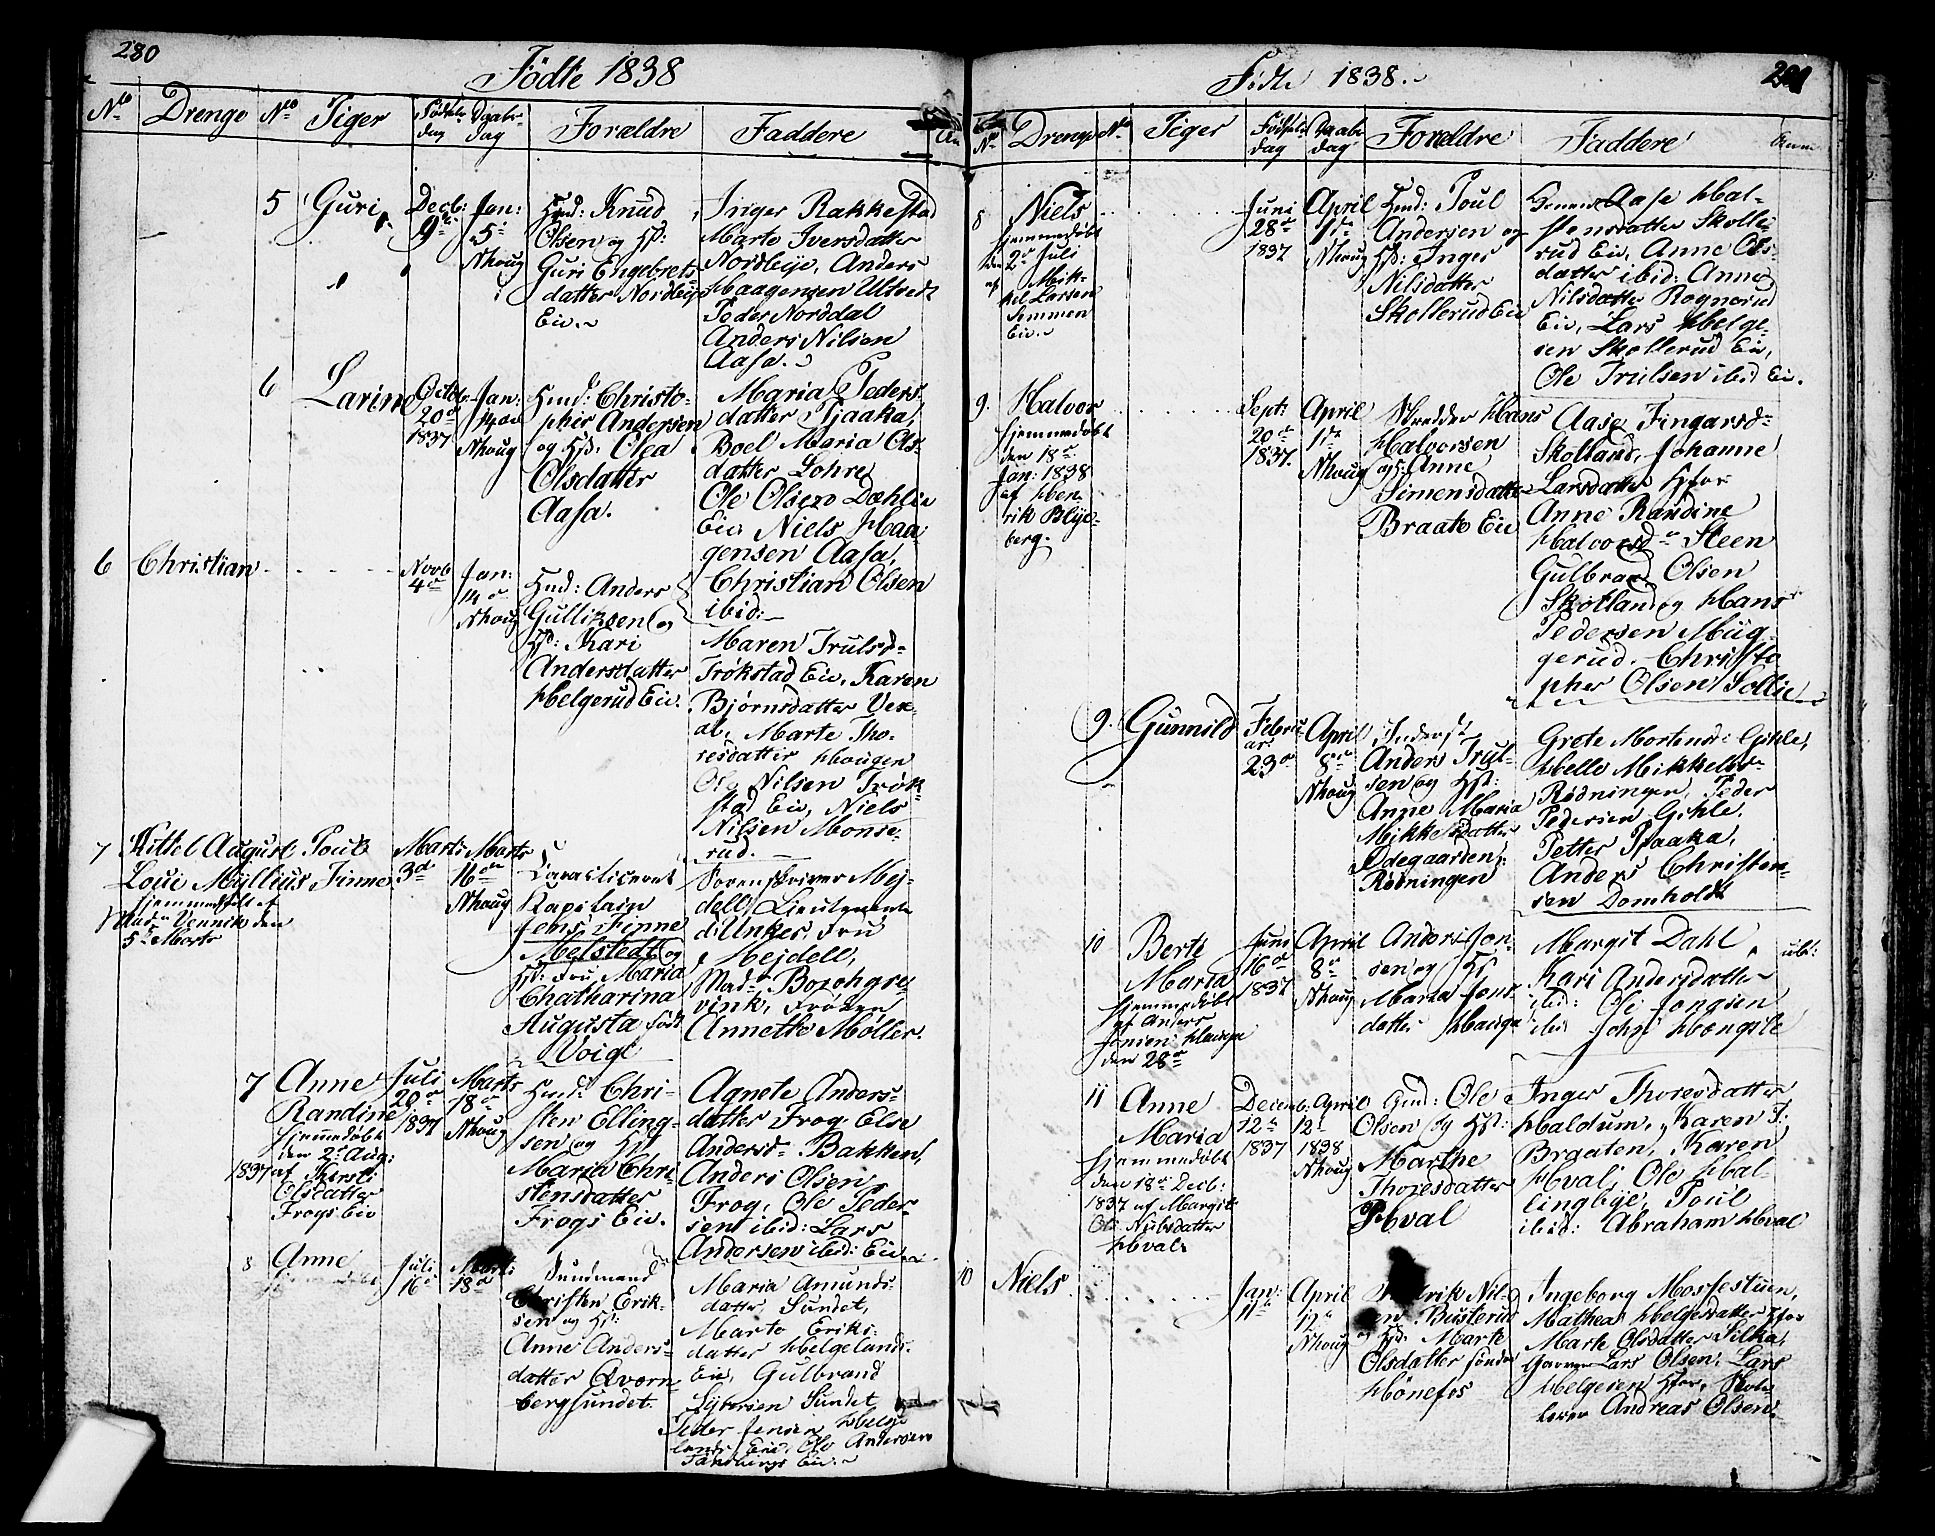 280
Fødte 1838
No Drenge No Piger Fødsels dag Daabs dag Forældre Faddere
5 Guri Decb: 9de Jan: 5te Nhoug
Hmd: Knud
Olsen og Hst:
Guri Engebrets
datter Nordbye
Eie.
Inger Rakkestad
Marte Iversdatter
Nordbye, Anders
Haagensen Ultvedt
Peder Norddal
Anders Nilsen
Aasa.
6 Larine Octob 20de 1837 Jan: 14de Nhoug
Hmd: Christo-
pher Andersen
og Hst: Olea
Olsdatter
Aasa.
Maria Peders-
datter Pjaaka,
Boel Maria Ols-
datter Lohre,
Ole Olsen Dæhlie
Eie, Niels Haa-
gensen Aasa,
Christian Olsen
ibid:
6 Christian Novb 4de Jan: 14de Nhoug
Hmd: Anders
Gulliksen og
Hst: Kari
Andersdatter
Helgerud Eie.
Maren Trulsd-
Trøkstad Eie, Karen
Bjørnsdatter Vex-
al, Marte Tho-
resdatter Hougen
Ole Nilsen Trøk-
stad Eie, Niels
Nilsen Monse-
rud.
7 Kittel August Poul
Loui Myllius Finne
hjemmedøbt af
Mad: Vennik den
5te Marts
Marts 3de Marts 16de Nhoug
Caracteriseret
Kapitain
Jens Finne
Melstedt og
Hst: Fru Maria
Chatharina
Augusta født
Voigt
Sorenskriver Mej-
dell, Lieutenant
d'Unker, Fru
Mejdell,
Mad: Borchgre-
vink, Frøken
Annette Møller.
7 Anne
Randine
hjemmedøbt
den 2de Aug:
1837 af Kirsti
Olsdatter
Frogs Eie
Juli 20de 1837 Marts 18de Nhoug
Hmd: Chri-
sten Elling-
sen og Hst
Maria Chri-
stensdatter
Frogs Eie.
Agnete Anders-
datter Frog, Else
Andersd: Bakken,
Anders Olsen
Frog, Ole Peder-
sen ibid: Lars
Andersen ibid: Eie
8 Anne Juli 16de Marts 18de
Sundmand
Christen Erik-
sen og Hst:
Anne Anders-
datter Qvern-
bergsundet.
Maria Amunds-
datter Sundet,
Marte Eriks-
datter Helgelands-
Eie, Gulbrand
Syversen Sundet
Peder Jensen Helge
lands Eie, Ole Andersen
Tandbergs Eie.
281
Fødte 1838.
No Drenge No Piger Fødsels dag Daabs dag Forældre Faddere Anm
8 Niels
hjemmedøbt
den 2de Juli
af Mik-
kel Larsen
Semmen
Eie.
Juni 28de 1837 April 1ste Nhoug
Hmd: Poul
Andersen og
Hst: Inger
Nilsdatter
Skollerud Eie
Aase Hal-
stensdatter Skolle-
rud Eie, Anne Ols-
datter ibid: Anne
Nilsdatter Rognerud
Eie, Lars Helge-
sen Skollerud Eie,
Ole Trulsen ibid Eie.
9. Halvor
hjemmedøbt
den 18de
Jan: 1838
af Hen-
rik Blye-
berg.
Sept: 20de 1837. April 1ste Nhoug
Skrædder Hans
Halvorsen
og Anne
Simensdatter
Braate Eie
Aase Fingarsd-
Skotland, Johanne
Larsdatter Hfos
Anne Randine
Halvorsd: Steen
Gulbrand Olsen
Skotland og Hans
Pedersen Müg-
gerud. Christo
pher Olsen Sollie
9. Gunnild Februar 23de April 8de Nhoug
Inderst
Anders Trul-
sen og Hst:
Anne Maria
Mikkelsdatter
Ødegaarden:
Rødningen
Grete Mortensd: Gihle,
Helle Mikkelsd-
Rødningen, Peder
Pedersen Gihle,
Petter Pjaaka,
Anders Christen-
sen Domholdt
10 Berte
Maria
hjemmedøbt
af Anders
Jonsen Hauga
den 28de
Juni 16de 1837 April 8de Nhoug
Anders Jon-
sen og Hst
Maria Jons-
datter Hauga
Margit Dahl,
Kari Andersdatter
ibid: Ole Jongsen
ibid Johs: Hongsle
11 Anne
Maria
hjemmedøbt
den 18de Decb:
1837 af Margit
Nilsdatter
Hval
Decemb: 12te 1837 April 12te 1838 Nhoug
Gmd: Ole
Olsen og Hst:
Marthe
Thoresdatter
Hval
Inger Thoresdatter
Haldum, Karen T:
Braaten, Karen
Hval, Ole Hal-
lingbye, Poul
ibid: Abraham Hval
10 Niels Jan: 11te April 12te Nhoug
Fredrik Nil-
sen Busterud
og Hst: Marte
Olsdatter søndre
Hønefos
Ingeborg Mosfestuen,
Mathea Helgesdatter Hfos
Marte Olsdatter Silka,
Garver Lars Olsen, Lars
Helgesen Hfos, Skole
lærer Andreas Olsen